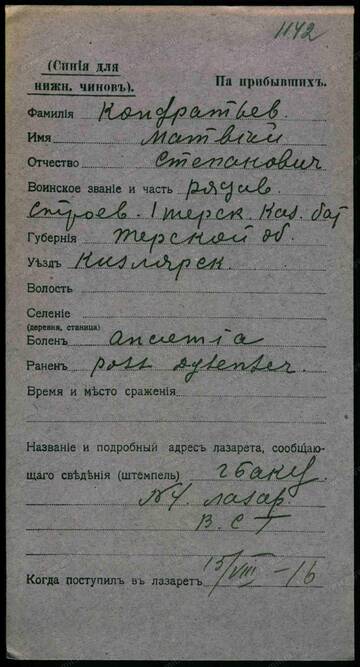 1142
(Синія для
нижн. чиновъ).
На прибывшихъ.
Фамилія Кондратьев
Имя Матвѣй
Отчество Степанович
Воинское званіе и часть рядов.
строев. 1 терск. Каз. бат
Губернія Терской об.
Уѣздъ Кизлярск.
Волость
Селеніе
(деревня, станица)
Боленъ anaemia
Раненъ post dysenter.
Время и мѣсто сраженія
Названіе и подробный адресъ лазарета, сообщаю-
щаго свѣдѣнія (штемпель) г Баку
№4. лазар
В. С. Г
Когда поступилъ въ лазаретъ 15/VIII -16